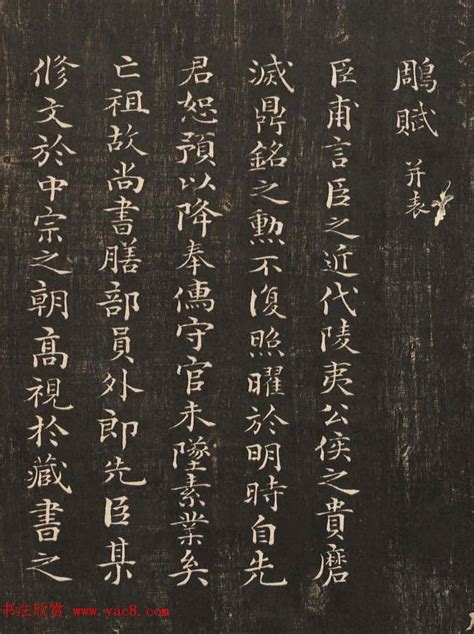 鵰賦 并表
臣甫言臣之近代陵夷公侯之貴磨
滅鼎銘之勲不復照曜於明時自先
君恕預以降奉儒守官未墜素業矣
亡祖故尚書膳部員外郎先臣某
修文於中宗之朝髙視於藏書之
书法欣赏 www.yac8.com